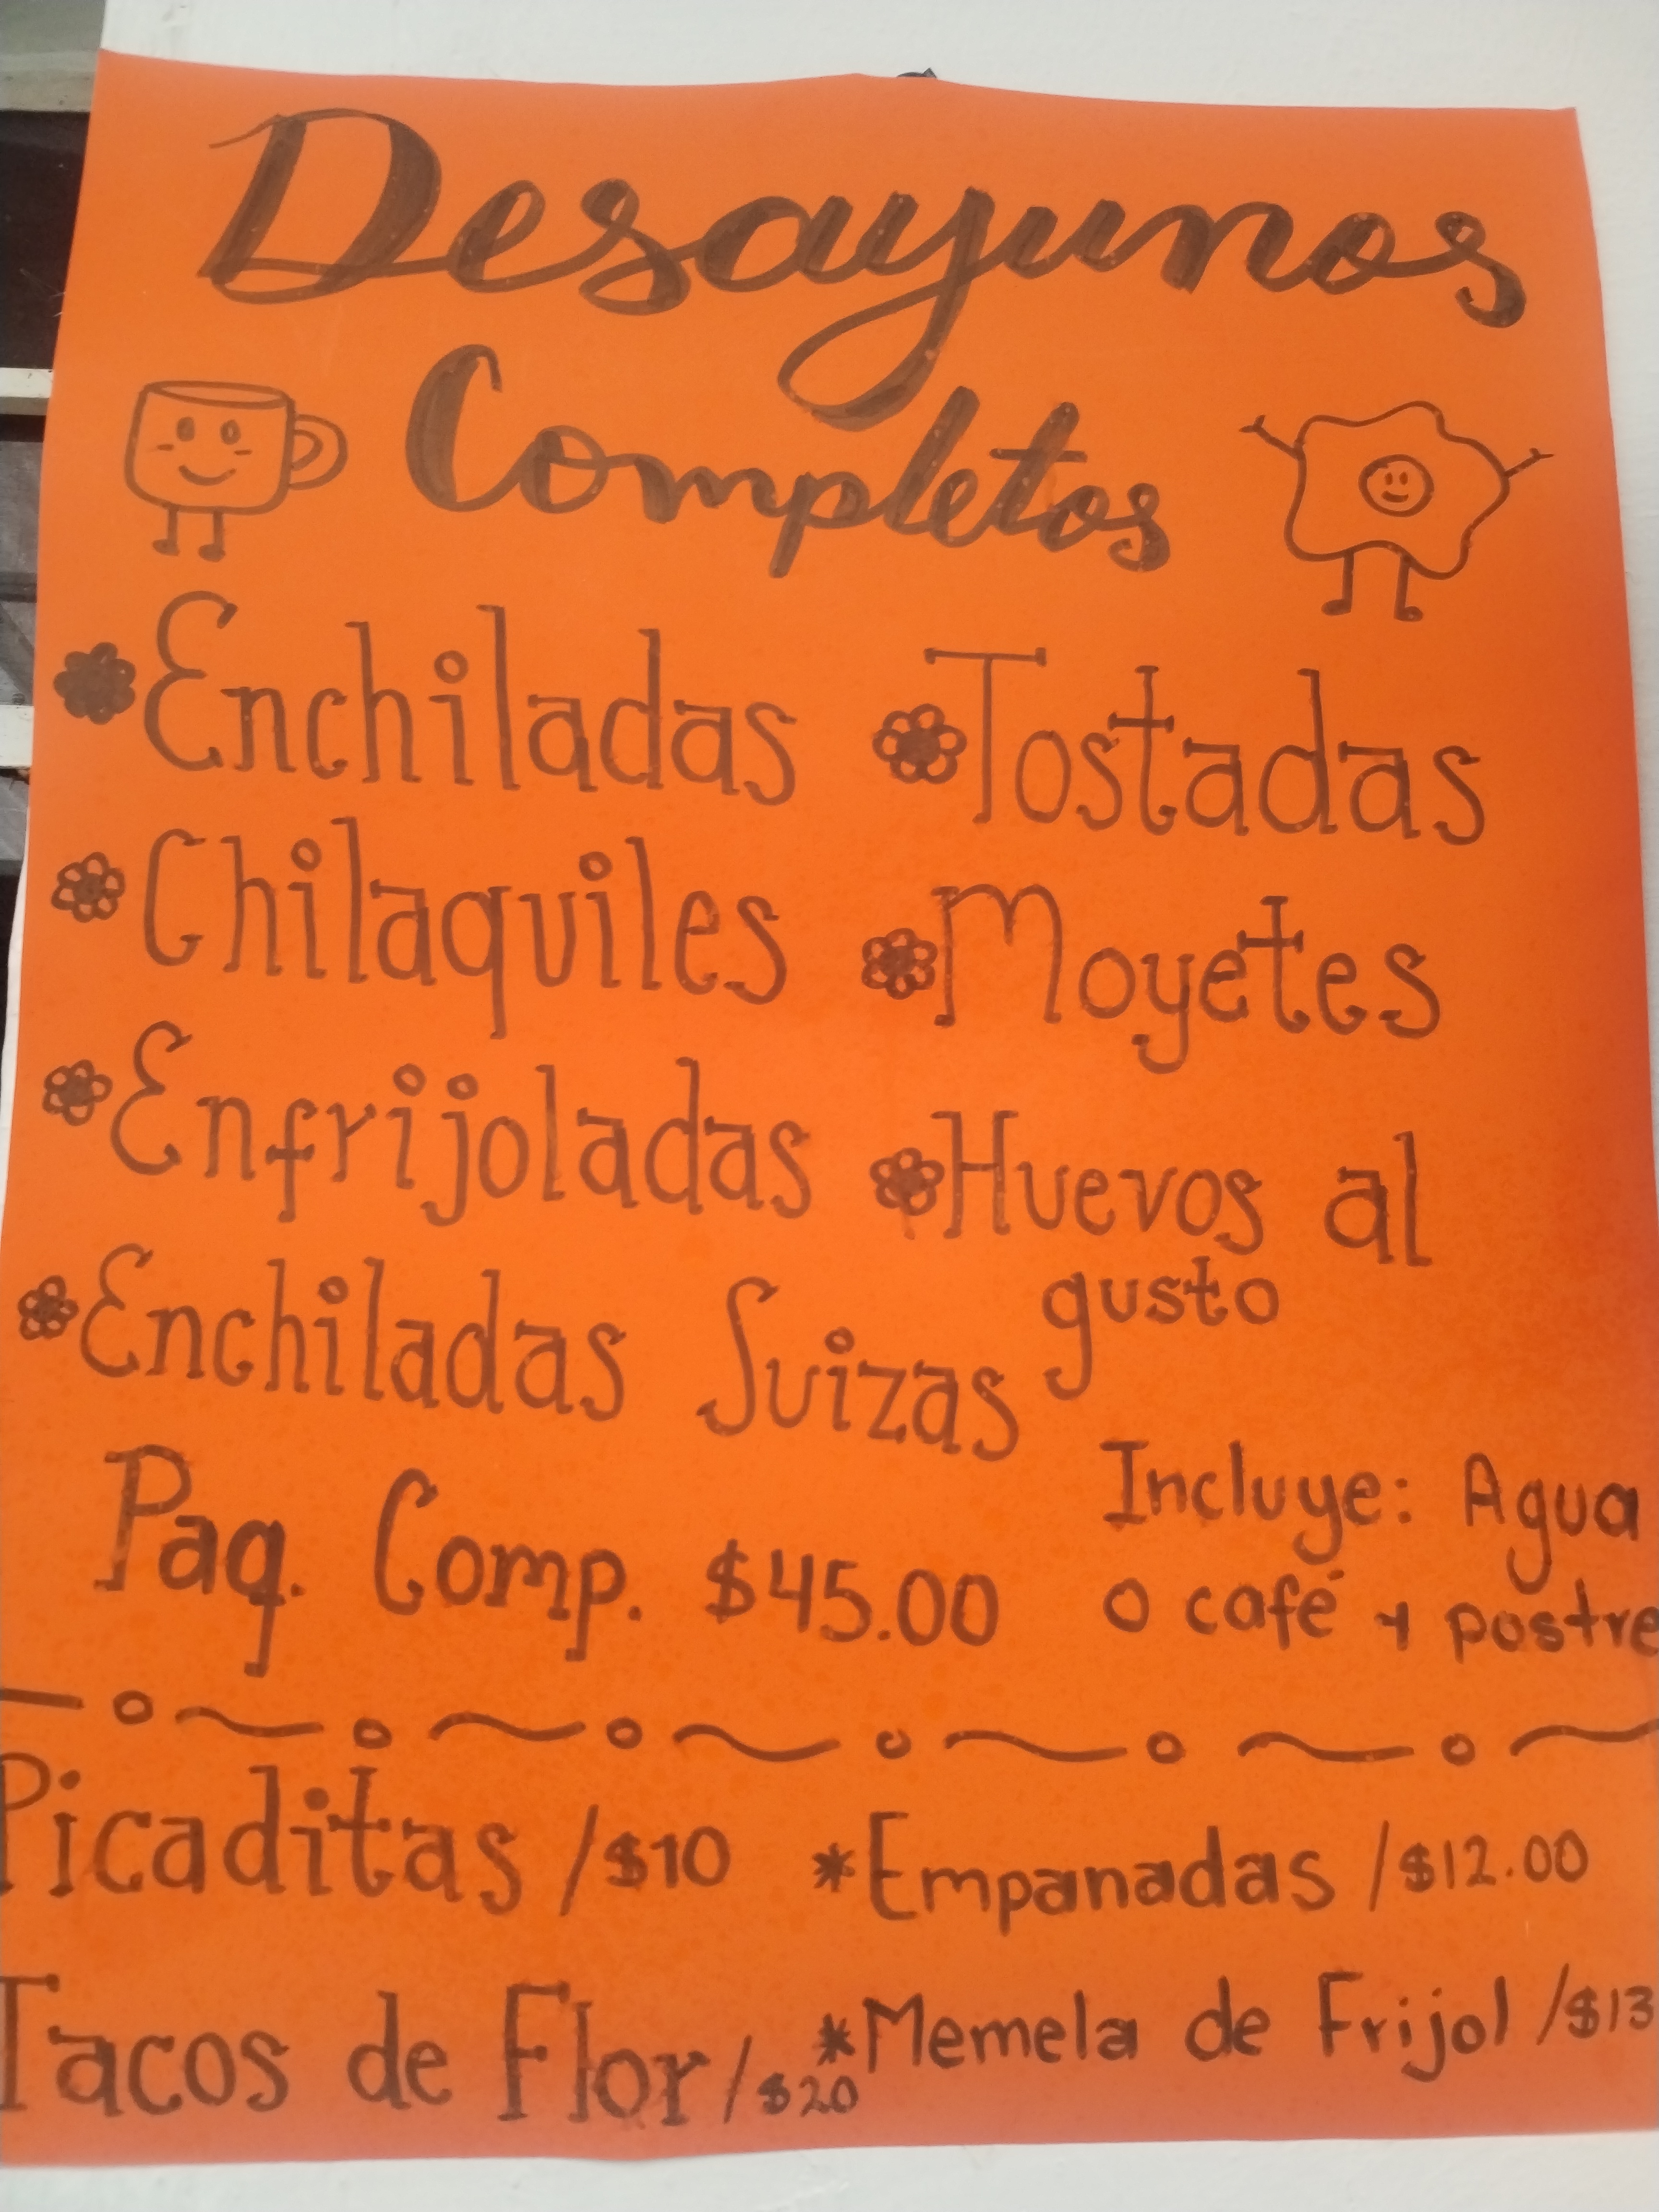 Desayunos
Completos
Enchiladas
Tostadas
Chilaquiles
Moyetes
Enfrijoladas
Huevos al
gusto
Enchiladas Suizas
Paq. Comp. $45.00
Incluye: Agua
o café y postre
Picaditas /$10
*Empanadas /$12.00
Tacos de Flor/$20
*Memela de Frijol /$13